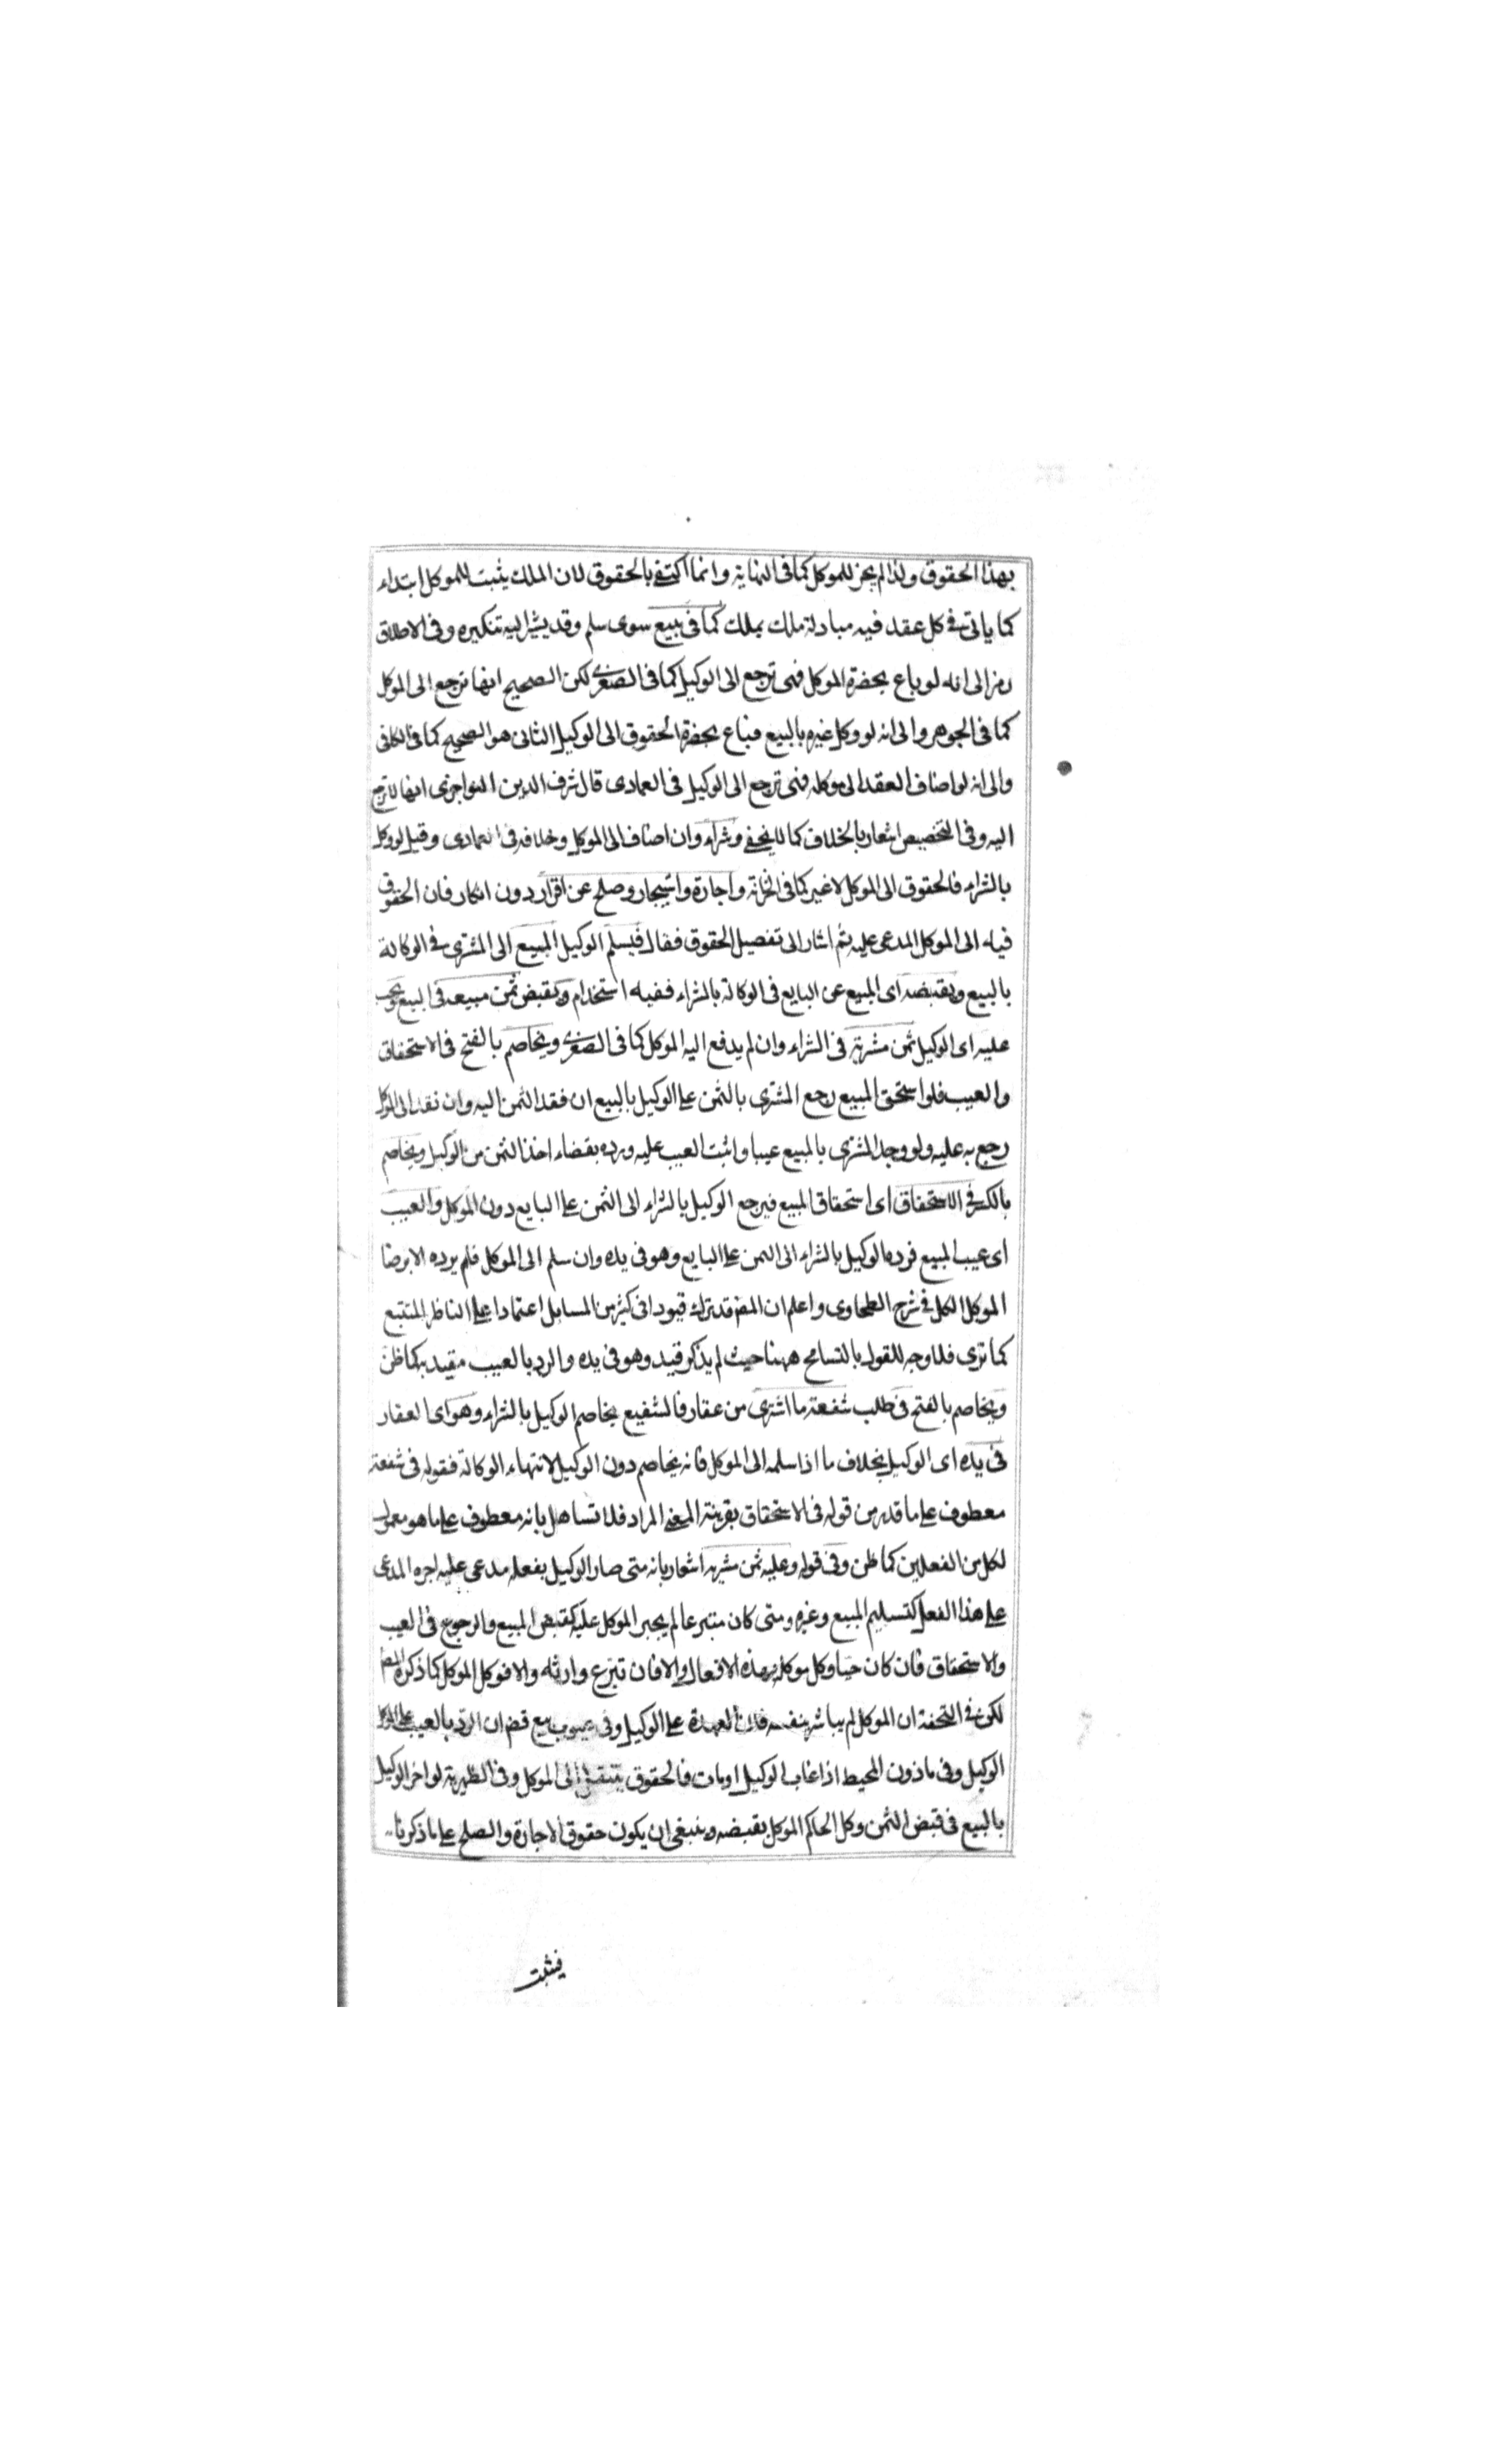 بهذا الحقوق ولذا لم يجز للموكل كما فى النهاية وانما اكتفے بالحقوق لان الملك يثبت للموكل ابتداء
كما ياتى فے كل عقد فيه مبادلة ملك بملك كما فى بيع سوى سلم وقد يشير اليه تنكيره وفى الاطلاق
رمز الى انه لو باع بحضرة الموكل فهى ترجع الى الوكيل كما فى الصغرى لكن الصحيح انها ترجع الى الموكل
كما فى الجوهر والى انه لو وكل غيره بالبيع فباع بحضرة الحقوق الى الوكيل الثانى هو الصحيح كما فى الكافى
والى انه لو اضاف العقد الى موكله فهى ترجع الى الوكيل فى العمادى قال شرف الدين انها لا ترجع
اليه وفى التخصيص اشعار بالخلاف كما لا يخفے وشراء وان اضاف الى الموكل وخلافه فى العمادى وقيل لو وكل
بالشراء فالحقوق الى الموكل لا غير كما فى الخزانة واجارة واستيجار وصلح عن اقرار دون انكار فان الحقوق
فيه الى الموكل المدعى عليه ثم اشار الى تفصيل الحقوق فقال فيسلم الوكيل المبيع الى المشترى فے الوكالة
بالبيع ويقبضه اى المبيع عن البايع فى الوكالة بالشراء ففيه استخدام ويقبض ثمن مبيعه فى البيع ويجب
عليه اى الوكيل ثمن مشريه فى الشراء وان لم يدفع اليه الموكل كما فى الصغرى ويخاصم بالفتح فى الاستحقاق
والعيب فلو استحق المبيع رجع المشترى بالثمن على الوكيل بالبيع ان فقد الثمن اليه وان نقد الى الموكل
رجع به عليه ولو وجد المشترى بالمبيع عيبا واثبت العيب عليه ورده بقضاء اخذ الثمن من الوكيل ويخاصم
بالكسر فى الاستحقاق اى استحقاق المبيع فيرجع الوكيل بالشراء الى الثمن على البايع دون الموكل والعيب
اى عيب المبيع فرده الوكيل بالشراء الى الثمن على البايع وهو فى يده وان سلم الى الموكل فلم يرده الا برضا
الموكل الكل فے شرح الطحاوى واعلم ان المص قد ترك قيودا فى كثير من المسايل اعتمادا على الناظر المتتبع
كما ترى فلا وجه للقول بالتسامح ههنا حيث لم يذكر قيد وهو فى يده والرد بالعيب مقيد به كما ظن
ويخاصم بالفتح فى طلب شفعة ما اشترى من عقار فالشفيع يخاصم الوكيل بالشراء وهو اى العقار
فى يده اى الوكيل بخلاف ما اذا سلمه الى الموكل فانه يخاصم دون الوكيل لانتهاء الوكالة فقوله فى شفعة
معطوف على ما قدر من قوله فى الاستحقاق بقرينة المعنى المراد فلا تساهل بانه معطوف على ما هو معمول
لكل من الفعلين كما ظن وفى قوله وعليه ثمن مشريه اشعار بانه متى صار الوكيل بفعله مدعى عليه اجبره المدعى
على هذا الفعل كتسليم المبيع وغيره ومتى كان متبرعا لم يجبر الموكل عليه كقبض المبيع والرجوع فى العيب
والاستحقاق فان كان حيا وكل موكله بهذه الافعال والا فان تبرع وارثه والا فوكل الموكل كما ذكره المص
لكن فے التحفة ان الموكل لم يباشر بنفسه فلان العهدة على الوكيل وفى عيوب بيع قض ان الرد بالعيب على
الوكيل وفى ماذون المحيط اذا غاب الوكيل او مات فالحقوق ينتقل الى الموكل وفى الظهيرية لو اخر الوكيل
بالبيع فى قبض الثمن وكل الحاكم الموكل بقبضه وينبغى ان يكون حقوق الاجارة والصلح على ما ذكرنا
فيثبت